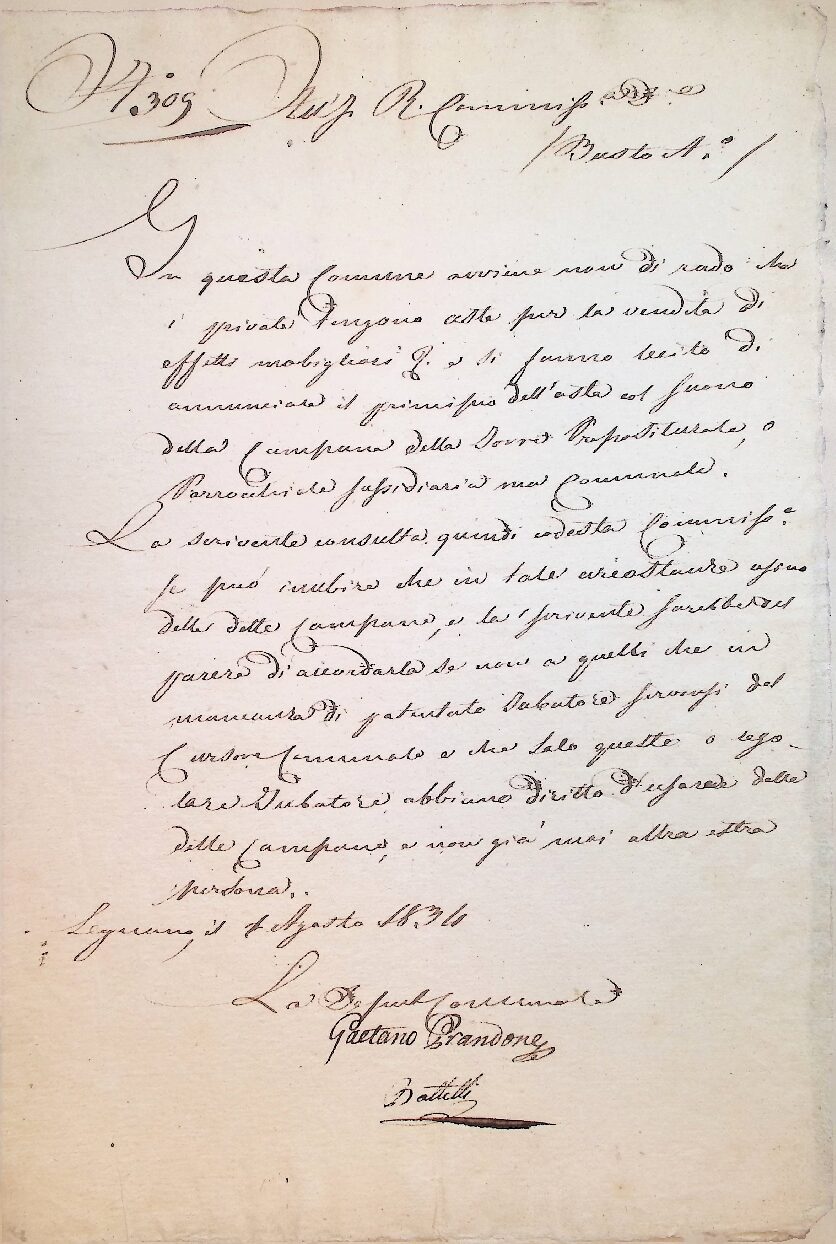 N.° 309 R. Commiss
/ Busto A.° /
In questa Comune avviene non di rado che
i privati tengono asta per la vendita di
effetti mobigliari e si fanno lecito di
annunciare il principio dell'asta col suono
della Campana della Torre Prepositurale, o
Parrocchiale sussidiaria ma Comunale.
La scrivente consulta quindi codesta Commiss.e
se può inibire che in tale circostanze
delle dette Campane, e la scrivente sarebbe del
parere di accordarla se non a quelli che in
mancanza di patentato Tubatore servonsi del
Cursore Comunale e che solo questo o rego-
lare Tubatore abbiano diritto d'usare delle
dette Campane, e non già mai altra estra
persona.
Legnano, il 4 Agosto 1834
La Deput Comunale
Gaetano Prandone